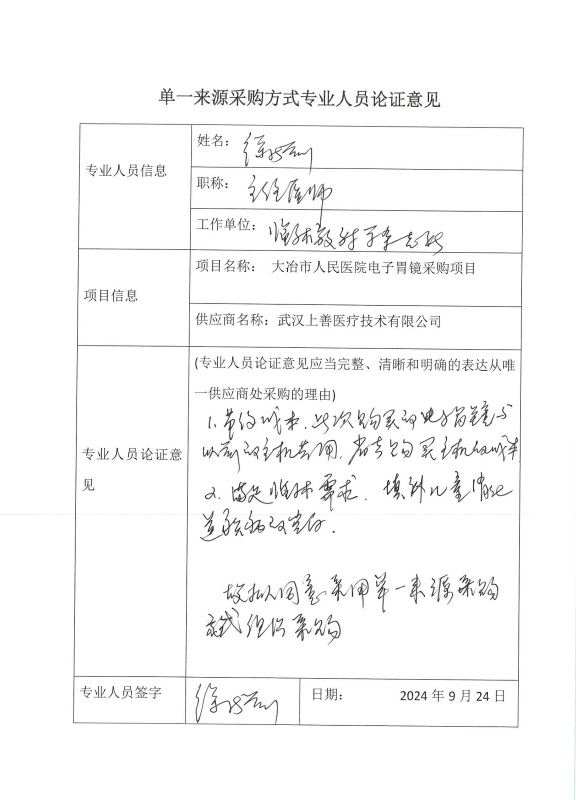 单一来源采购方式专业人员论证意见
专业人员信息
姓名：徐
职称：主任医师
工作单位：
项目信息
项目名称：大冶市人民医院电子胃镜采购项目
供应商名称：武汉上善医疗技术有限公司
专业人员论证意见
(专业人员论证意见应当完整、清晰和明确的表达从唯
一供应商处采购的理由)
1.节约成本，此次购买的电子胃镜与
以前的主机共用，省去购买主机的成本
2.满足临床需求，填补儿童消化
道疾病的空白.
故拟同意采用单一来源采购
方式组织采购
专业人员签字
徐
日期：
2024 年 9 月 24 日